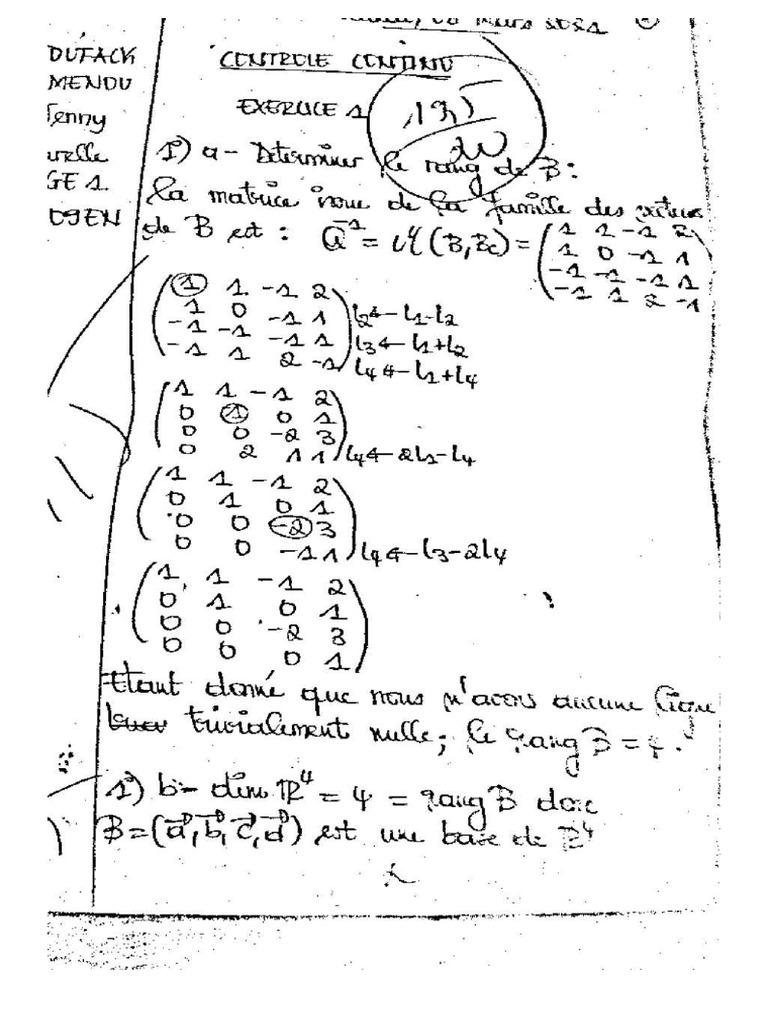 08 Mars 2021
DUTACK
MENDU
CONTROLE CONTINU
EXERCICE 1
1°) a - Determiner le rang de B :
GE 1.
la matrice issue de la famille des vecteurs
de B est : Q⁻¹ = M(B, Bc) = ( 1 1 -1 2
1 0 -1 1
-1 -1 -1 1
-1 1 2 -1 )
( 1 1 -1 2
1 0 -1 1 ) L2 ← L1-L2
-1 -1 -1 1 L3 ← L1+L2
-1 1 2 -1 L4 ← L1+L4
( 1 1 -1 2
0 1 0 1
0 0 -2 3
0 2 1 1 ) L4 ← 2L1-L4
( 1 1 -1 2
0 1 0 1
0 0 -2 3
0 0 -1 1 ) L4 ← L3-2L4
( 1 1 -1 2
0 1 0 1
0 0 -2 3
0 0 0 1 )
Etant donné que nous n'avons aucune ligne
trivialement nulle ; le rang B = 4.
1°) b - dim ℝ⁴ = 4 = rang B donc
B = (a, b, c, d) est une base de ℝ⁴